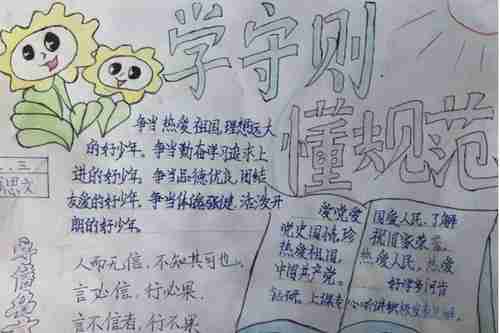 学守则
懂规范
争当热爱祖国,理想远大
的好少年。争当勤奋学习追求上
进的好少年,争当品德优良,团结
友爱的好少年,争当体魄强健,活泼开
朗的好少年。
人而无信,不知其可也。
言必信,行必果。
言不信者,行不果
爱党爱
党史国情,珍
热爱祖国,
中国共产党。
钻研。上课专
国爱人民,了解
视国家荣誉。
热爱人民,热爱
好学多问肯
心听讲积极发表见解。
三